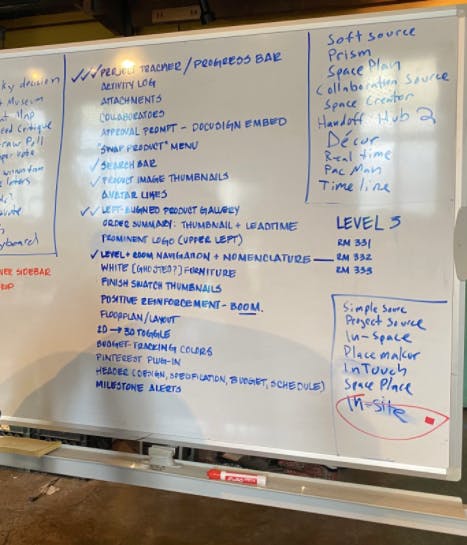 decision
Museum
Map
Critique
Poll
note
board
SIDEBAR
✓✓✓ PROJECT TRACKER / PROGRESS BAR
ACTIVITY LOG
ATTACHMENTS
COLLABORATORS
APPROVAL PROMPT - DOCUSIGN EMBED
"SWAP PRODUCT" MENU
✓ SEARCH BAR
✓ PRODUCT IMAGE THUMBNAILS
AVATAR LIKES
✓✓ LEFT-ALIGNED PRODUCT GALLERY
ORDER SUMMARY: THUMBNAIL + LEADTIME
PROMINENT LOGO (UPPER LEFT)
✓ LEVEL + ROOM NAVIGATION + NOMENCLATURE —
WHITE (GHOSTED?) FURNITURE
FINISH SWATCH THUMBNAILS
POSITIVE REINFORCEMENT - BOOM.
FLOORPLAN/LAYOUT
2D → 3D TOGGLE
BUDGET-TRACKING COLORS
PINTEREST PLUG-IN
HEADER (DESIGN, SPECIFICATION, BUDGET, SCHEDULE)
MILESTONE ALERTS
Soft source
Prism
Space Plan
Collaboration Source
Space Creator
Handoff Hub 2
Décor
Real time
Pac Man
Time line
LEVEL 3
RM 331
RM 332
RM 333
Simple sourc
Project Source
In-Space
Placemaker
InTouch
Space Place
In-site